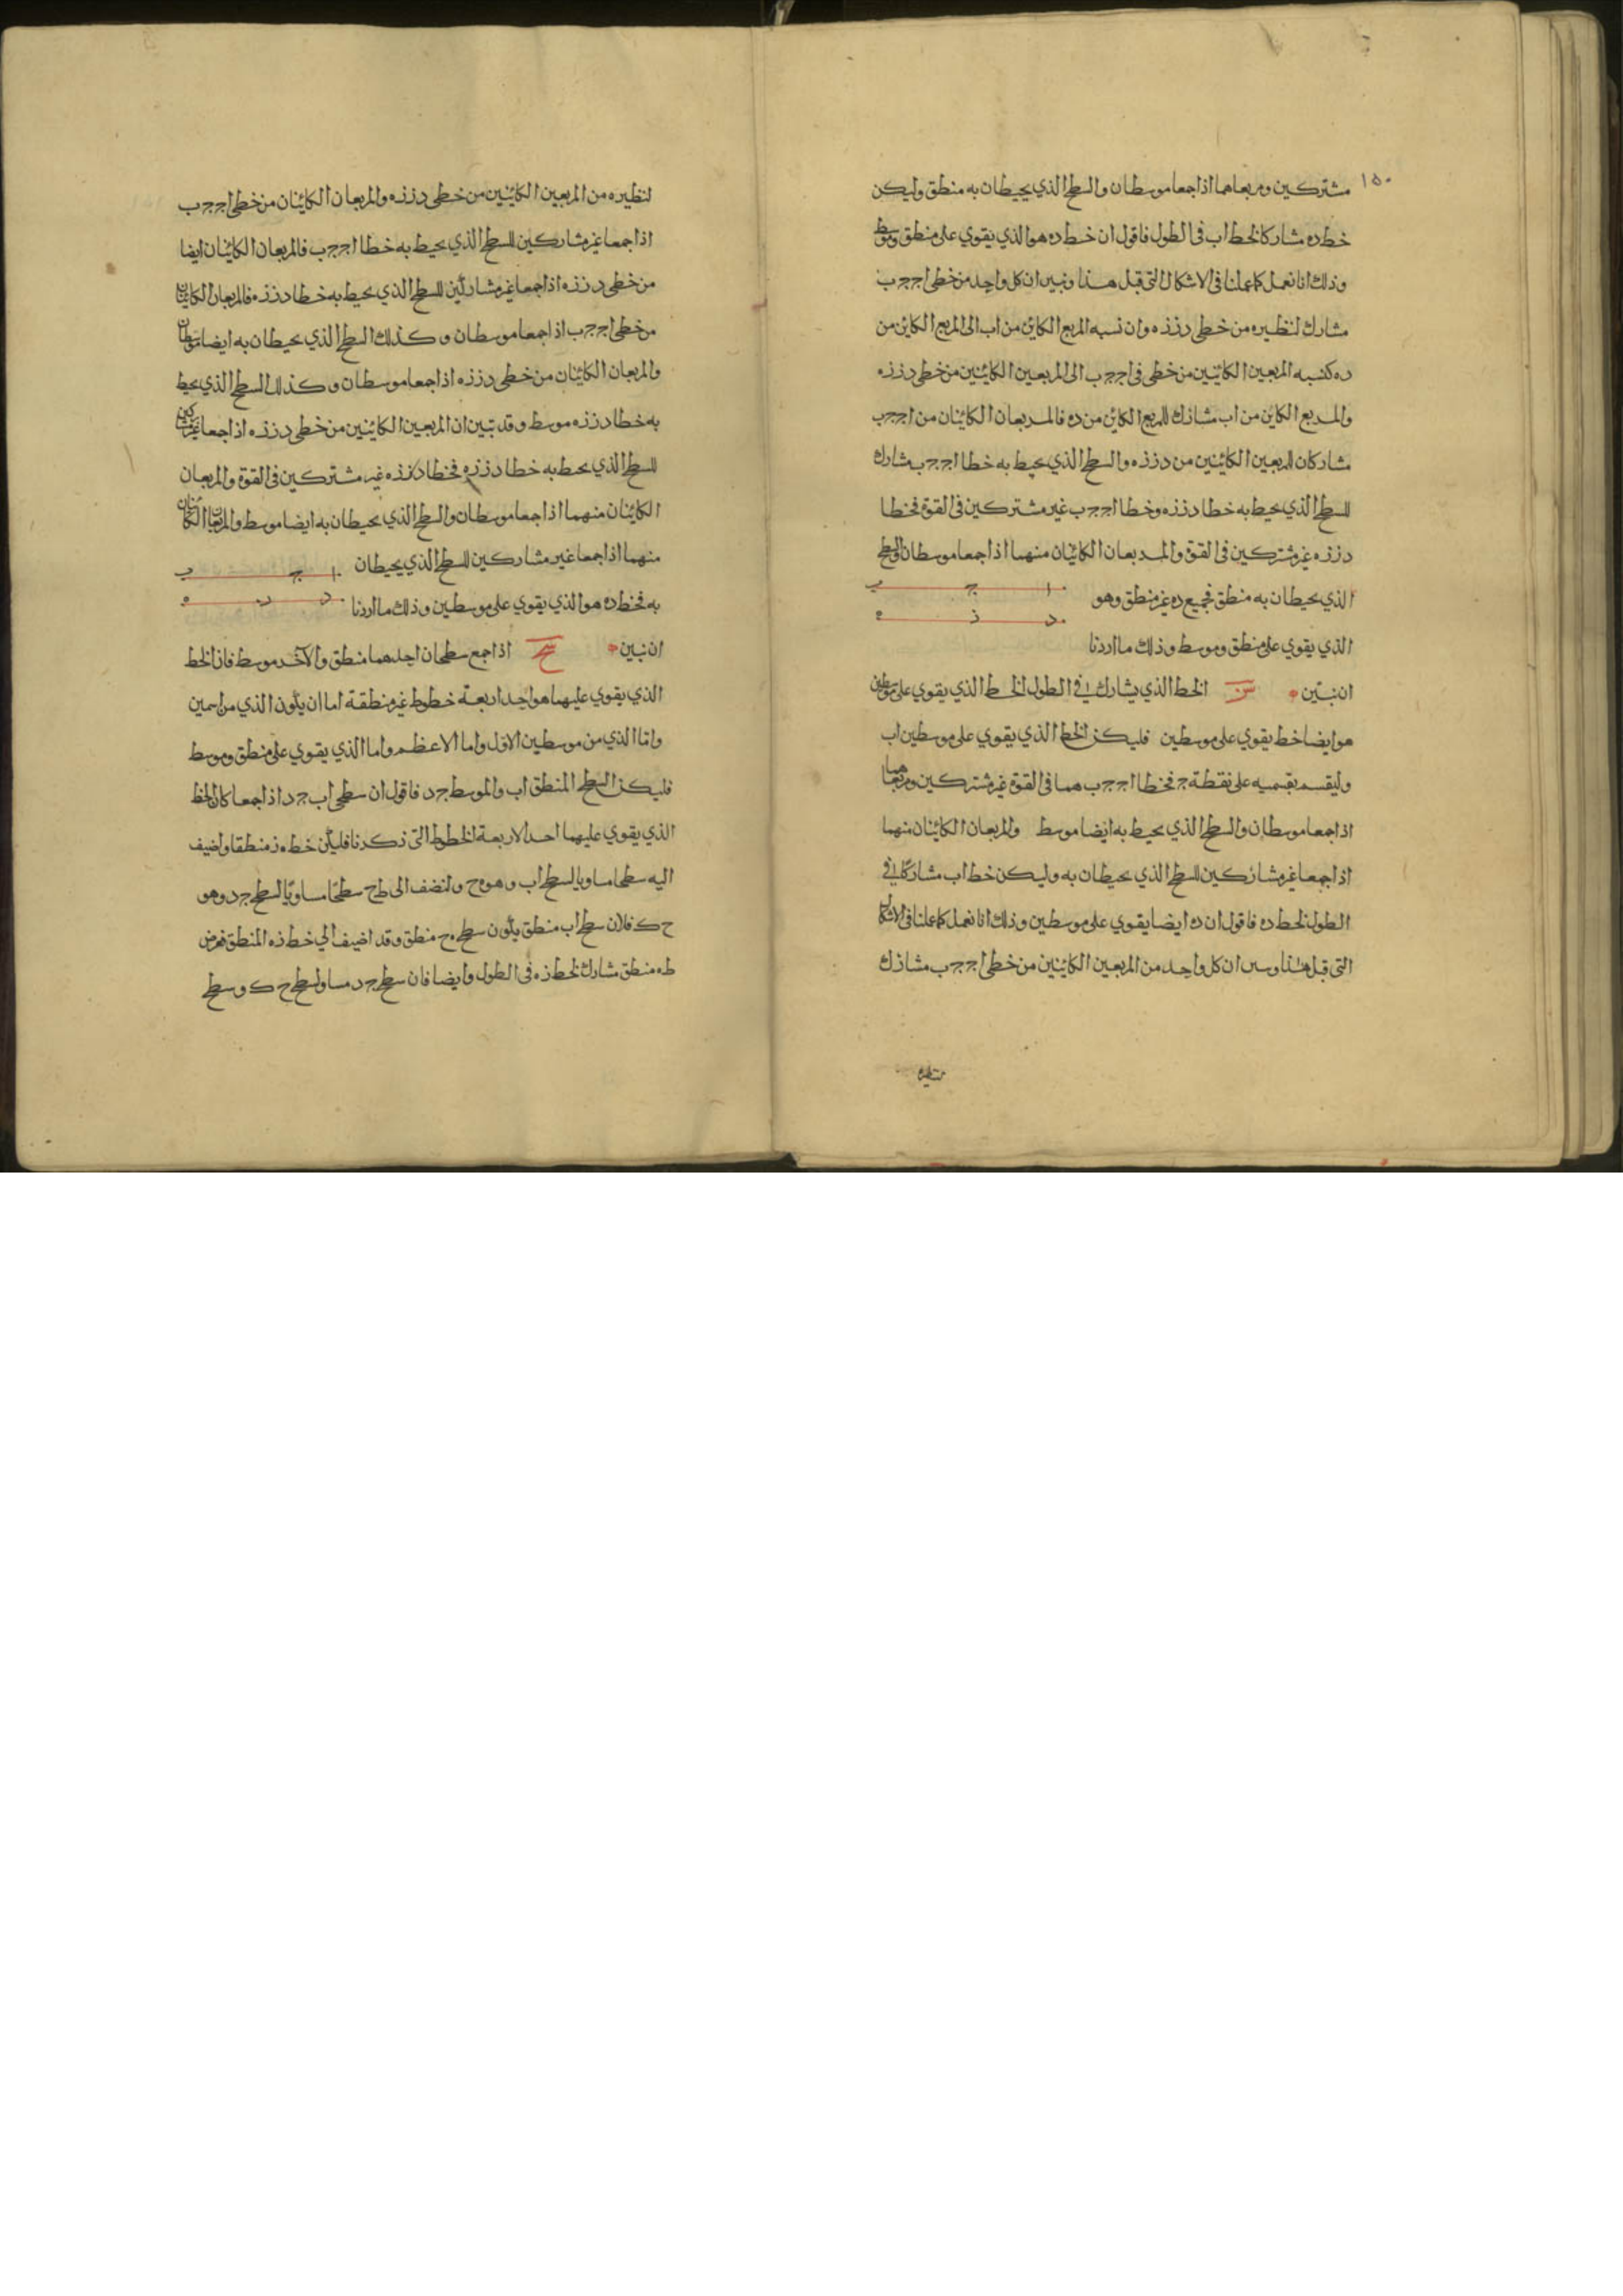 ١٥٠
مشتركين ومربعاهما اذا جمعا موسطان والسطح الذي يحيطان به منطق وليكن
خط ده مشاركا لخط اب في الطول فاقول ان خط ده هو الذي يقوي على منطق وموسط
وذلك انا نعمل كما عملنا في الاشكال التي قبل هذا ونبين ان كل واحد من خطي اج جب
مشارك لنظيره من خطي دز زه وان نسبه المربع الكاين من اب الى المربع الكاين من
ده كنسبه المربعين الكاينين من خطي في اج جب الى المربعين الكاينين من خطي دز زه
والمربع الكاين من اب مشارك للمربع الكاين من ده فالمربعان الكاينان من اج جب
مشاركان للمربعين الكاينين من دز زه والسطح الذي يحيط به خطا اج جب مشارك
للسطح الذي يحيط به خطا دز زه وخطا اج جب غير مشتركين في القوة فخطا
دز زه غير مشتركين في القوة والمربعان الكاينان منهما اذا جمعا موسطان والسطح
الذي يحيطان به منطق فجميع ده غير منطق وهو
ا ج ب
د ز ه
الذي يقوي على منطق وموسط وذلك ما اردنا
ان نبين سز الخط الذي يشارك في الطول الخط الذي يقوي على موسطين
هو ايضا خط يقوي على موسطين فليكن الخط الذي يقوي على موسطين اب
وليقسم بقسميه على نقطة ج فخطا اج جب هما في القوة غير مشتركين ومربعاهما
اذا جمعا موسطان والسطح الذي يحيط به ايضا موسط والمربعان الكاينان منهما
اذا جمعا غير مشاركين للسطح الذي يحيطان به وليكن خط اب مشاركا في
الطول لخط ده فاقول ان ده ايضا يقوي على موسطين وذلك انا نعمل كما عملنا في الاشكال
التي قبل هذا وبين ان كل واحد من المربعين الكاينين من خطي اج جب مشارك
لنظيره
لنظيره من المربعين الكاينين من خطي دز زه والمربعان الكاينان من خطي اج جب
اذا جمعا غير مشاركين للسطح الذي يحيط به خطا اج جب فالمربعان الكاينان ايضا
من خطي دز زه اذا جمعا غير مشاركين للسطح الذي يحيط به خطا دز زه فالمربعان الكاينان
من خطي اج جب اذا جمعا موسطان وكذلك السطح الذي يحيطان به ايضا موسطان
والمربعان الكاينان من خطي دز زه اذا جمعا موسطان وكذلك السطح الذي يحيط
به خطا دز زه موسط وقد تبين ان المربعين الكاينين من خطي دز زه اذا جمعا غير مشاركين
للسطح الذي يحيط به خطا دز زه فخطا دز زه غير مشتركين في القوة والمربعان
الكاينان منهما اذا جمعا موسطان والسطح الذي يحيطان به ايضا موسط والمربعان الكاينان
منهما اذا جمعا غير مشاركين للسطح الذي يحيطان
ا ج ب
به فخط ده هو الذي يقوي على موسطين وذلك ما اردنا
د ز ه
ان نبين سح اذا جمع سطحان احدهما منطق والاخر موسط فان الخط
الذي يقوي عليهما هو احد اربعة خطوط غير منطقة اما ان يكون الذي من اسمين
واما الذي من موسطين الاول واما الاعظم واما الذي يقوي على منطق وموسط
فليكن السطح المنطق اب والموسط جد فاقول ان سطحي اب جد اذا جمعا كان الخط
الذي يقوي عليهما احد الاربعة الخطوط التي ذكرنا فليكن خط ه ز منطقا واضيف
اليه سطحا مساويا لسطح اب وهو ه ح ولنضف الى ط ح سطحا مساويا لسطح جد وهو
ح ك فلان سطح اب منطق يكون سطح ه ح منطق وقد اضيف الى خط زه المنطق فعرض
طه منطق مشارك لخط زه في الطول وايضا فان سطح جد مساو لسطح ح ك وسطح